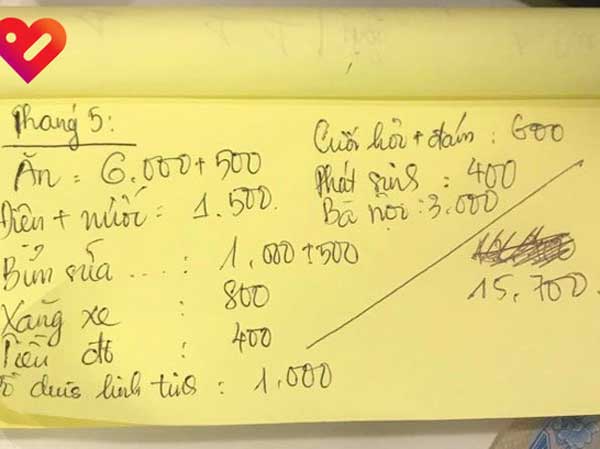 Tháng 5:
Ăn = 6.000 + 500
Điện + nước = 1.500.
Bỉm sữa ....: 1,000 + 500
Xăng xe : 800
Tiền đò : 400
đùng linh tinh : 1.000
Cưới hỏi + đám : 600
Phát sinh : 400
Bà nội : 3.000
15.700.